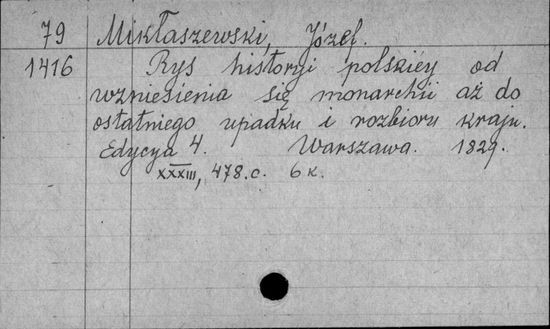 79 Mikłaszewski, Józef.
1416 Rys historyi polskiéy od
wzniesienia się monarchii aż do
ostatniego upadku i rozbioru kraju.
Edycya 4. Warszawa. 1829.
XXXIII, 478.c. 6 к.